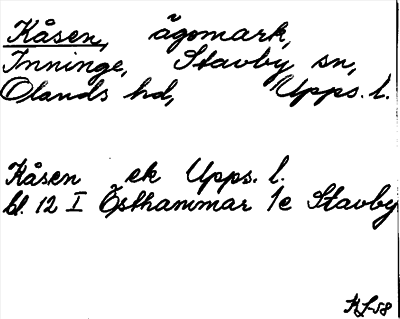 Kåsen, ägomark,
Inninge, Stavby sn,
Olands hd, Upps. l.
Kåsen ek Upps. l.
bl. 12 I Östhammar 1e Stavby
KJ-58